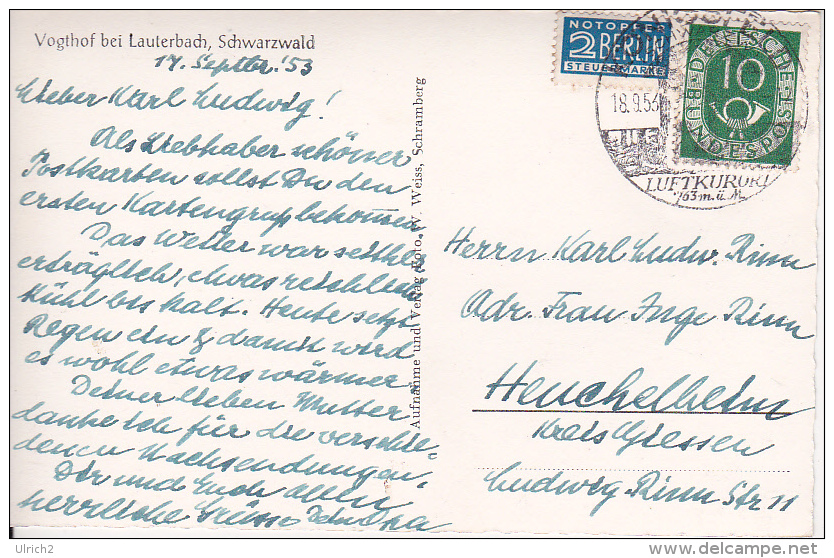 Vogthof bei Lauterbach, Schwarzwald
17. Septbr. '53
Lieber Karl Ludwig!
Als Liebhaber schöner
Postkarten sollst Du den
ersten Kartengruß bekommen
Das Wetter war seither
erträglich, etwas reichlich
kühl bis kalt. Heute setzt
Regen ein & damit wird
es wohl etwas wärmer.
Deiner lieben Mutter
danke ich für die verschie-
denen Nachsendungen.
Dir und Euch allen
herrliche Grüsse Dein Opa
Aufnahme und Verlag Foto W. Weiss, Schramberg
NOTOPFER
2 BERLIN
STEUERMARKE
DEUTSCHE BUNDESPOST
10
18.9.53
LUFTKURORT
963 m. ü. M.
Herrn Karl Ludw. Rinn
Adr. Frau Inge Rinn
Heuchelheim
Kreis Giessen
Ludwig-Rinn Str 11
Ulrich2
www.delcampe.net